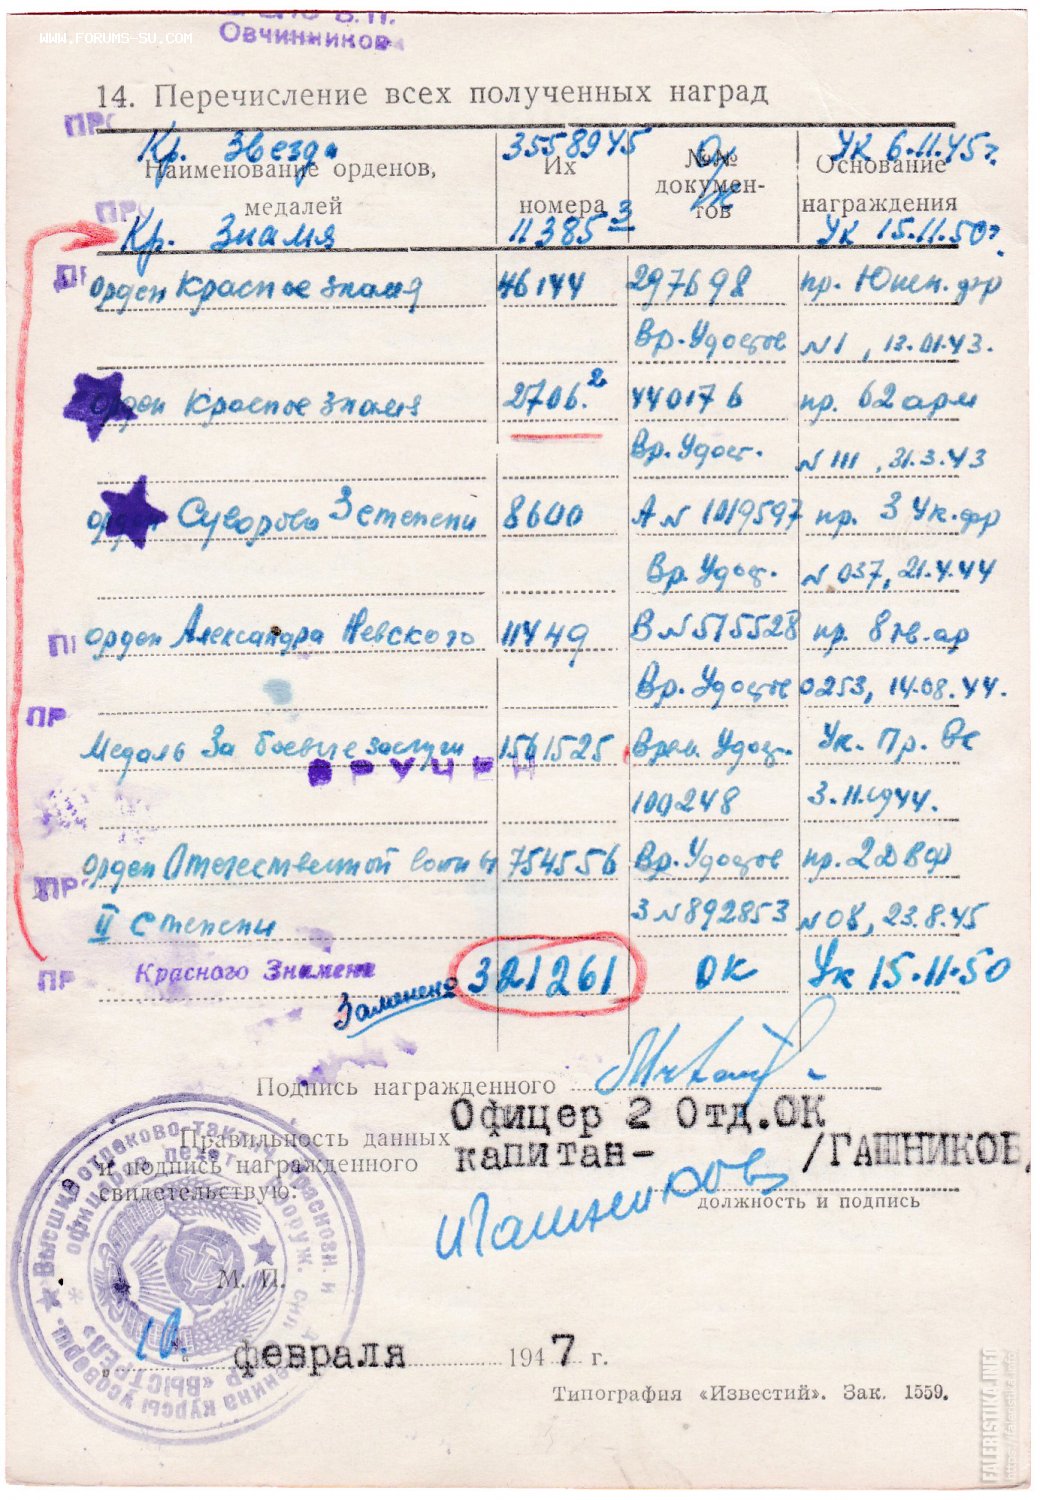 WWW.FORUMS-SU.COM
Овчинников
14. Перечисление всех полученных наград
ПРО
Кр. Звезда 3558945 Ок Ук 6.11.45г.
Наименование орденов, медалей
Их номера
№№ документов
Основание награждения
ПР
Кр. Знамя 11385 3 Ук 15.11.50г.
ПР
Орден Красное знамя 46144 297698 пр. Южн. фр
Вр. Удостов №1, 13.01.43.
Орден Красное знамя 2706.2 440176 пр. 62 арм
Вр. Удост. №111, 31.3.43
Орден Суворова 3 степени 8600 А№1019597 пр. 3 Ук. фр
Вр. Удос. №037, 21.4.44
ПР
Орден Александра Невского 11449 В№515528 пр. 8 гв. ар
Вр. Удостов 0253, 14.08.44.
ПР
Медаль За боевые заслуги 1561525 Врем. Удос. Ук. Пр. Вс
ВРУЧЕН
100248 3.11.1944.
Орден Отечественной войны 754556 Вр. Удостов пр. 2ДВФ
ПР
II степени З№892853 №08, 23.8.45
ПР
Красного Знамени 321261 ОК Ук 15.11.50
Заменено
Подпись награжденного
Офицер 2 Отд.ОК
Правильность данных
и подпись награжденного
капитан- /ГАШНИКОВ/
свидетельствую:
Гашников
должность и подпись
Высшие стрелково-тактич. краснозн. и
офицеров пехот.
курсы усоверш.
«ВЫСТРЕЛ»
М. П.
" 10 " февраля 1947 г.
Типография «Известий». Зак. 1559.
FALERISTIKA.INFO
https://faleristika.info